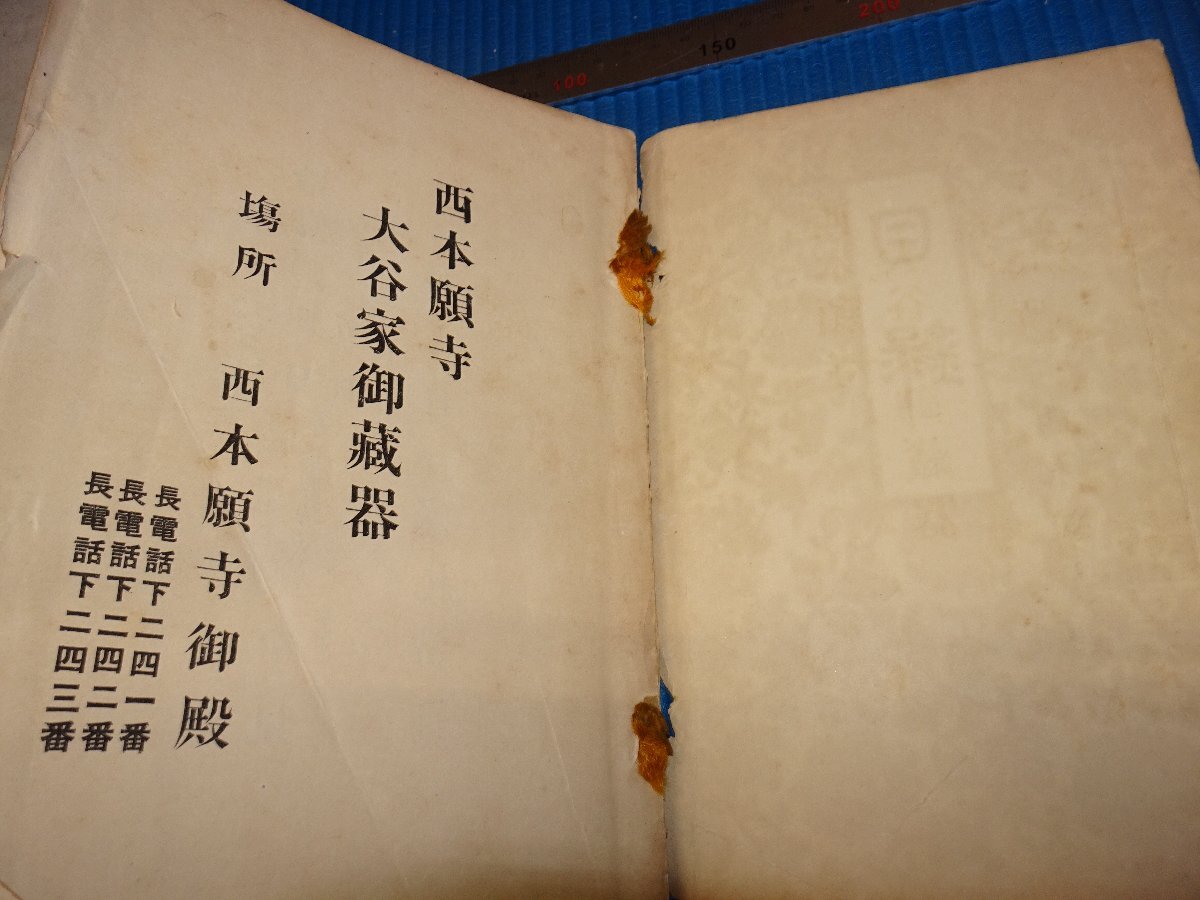 西本願寺
大谷家御藏器
塲所　西本願寺御殿
長電話下二四一番
長電話下二四二番
長電話下二四三番
100
150
200